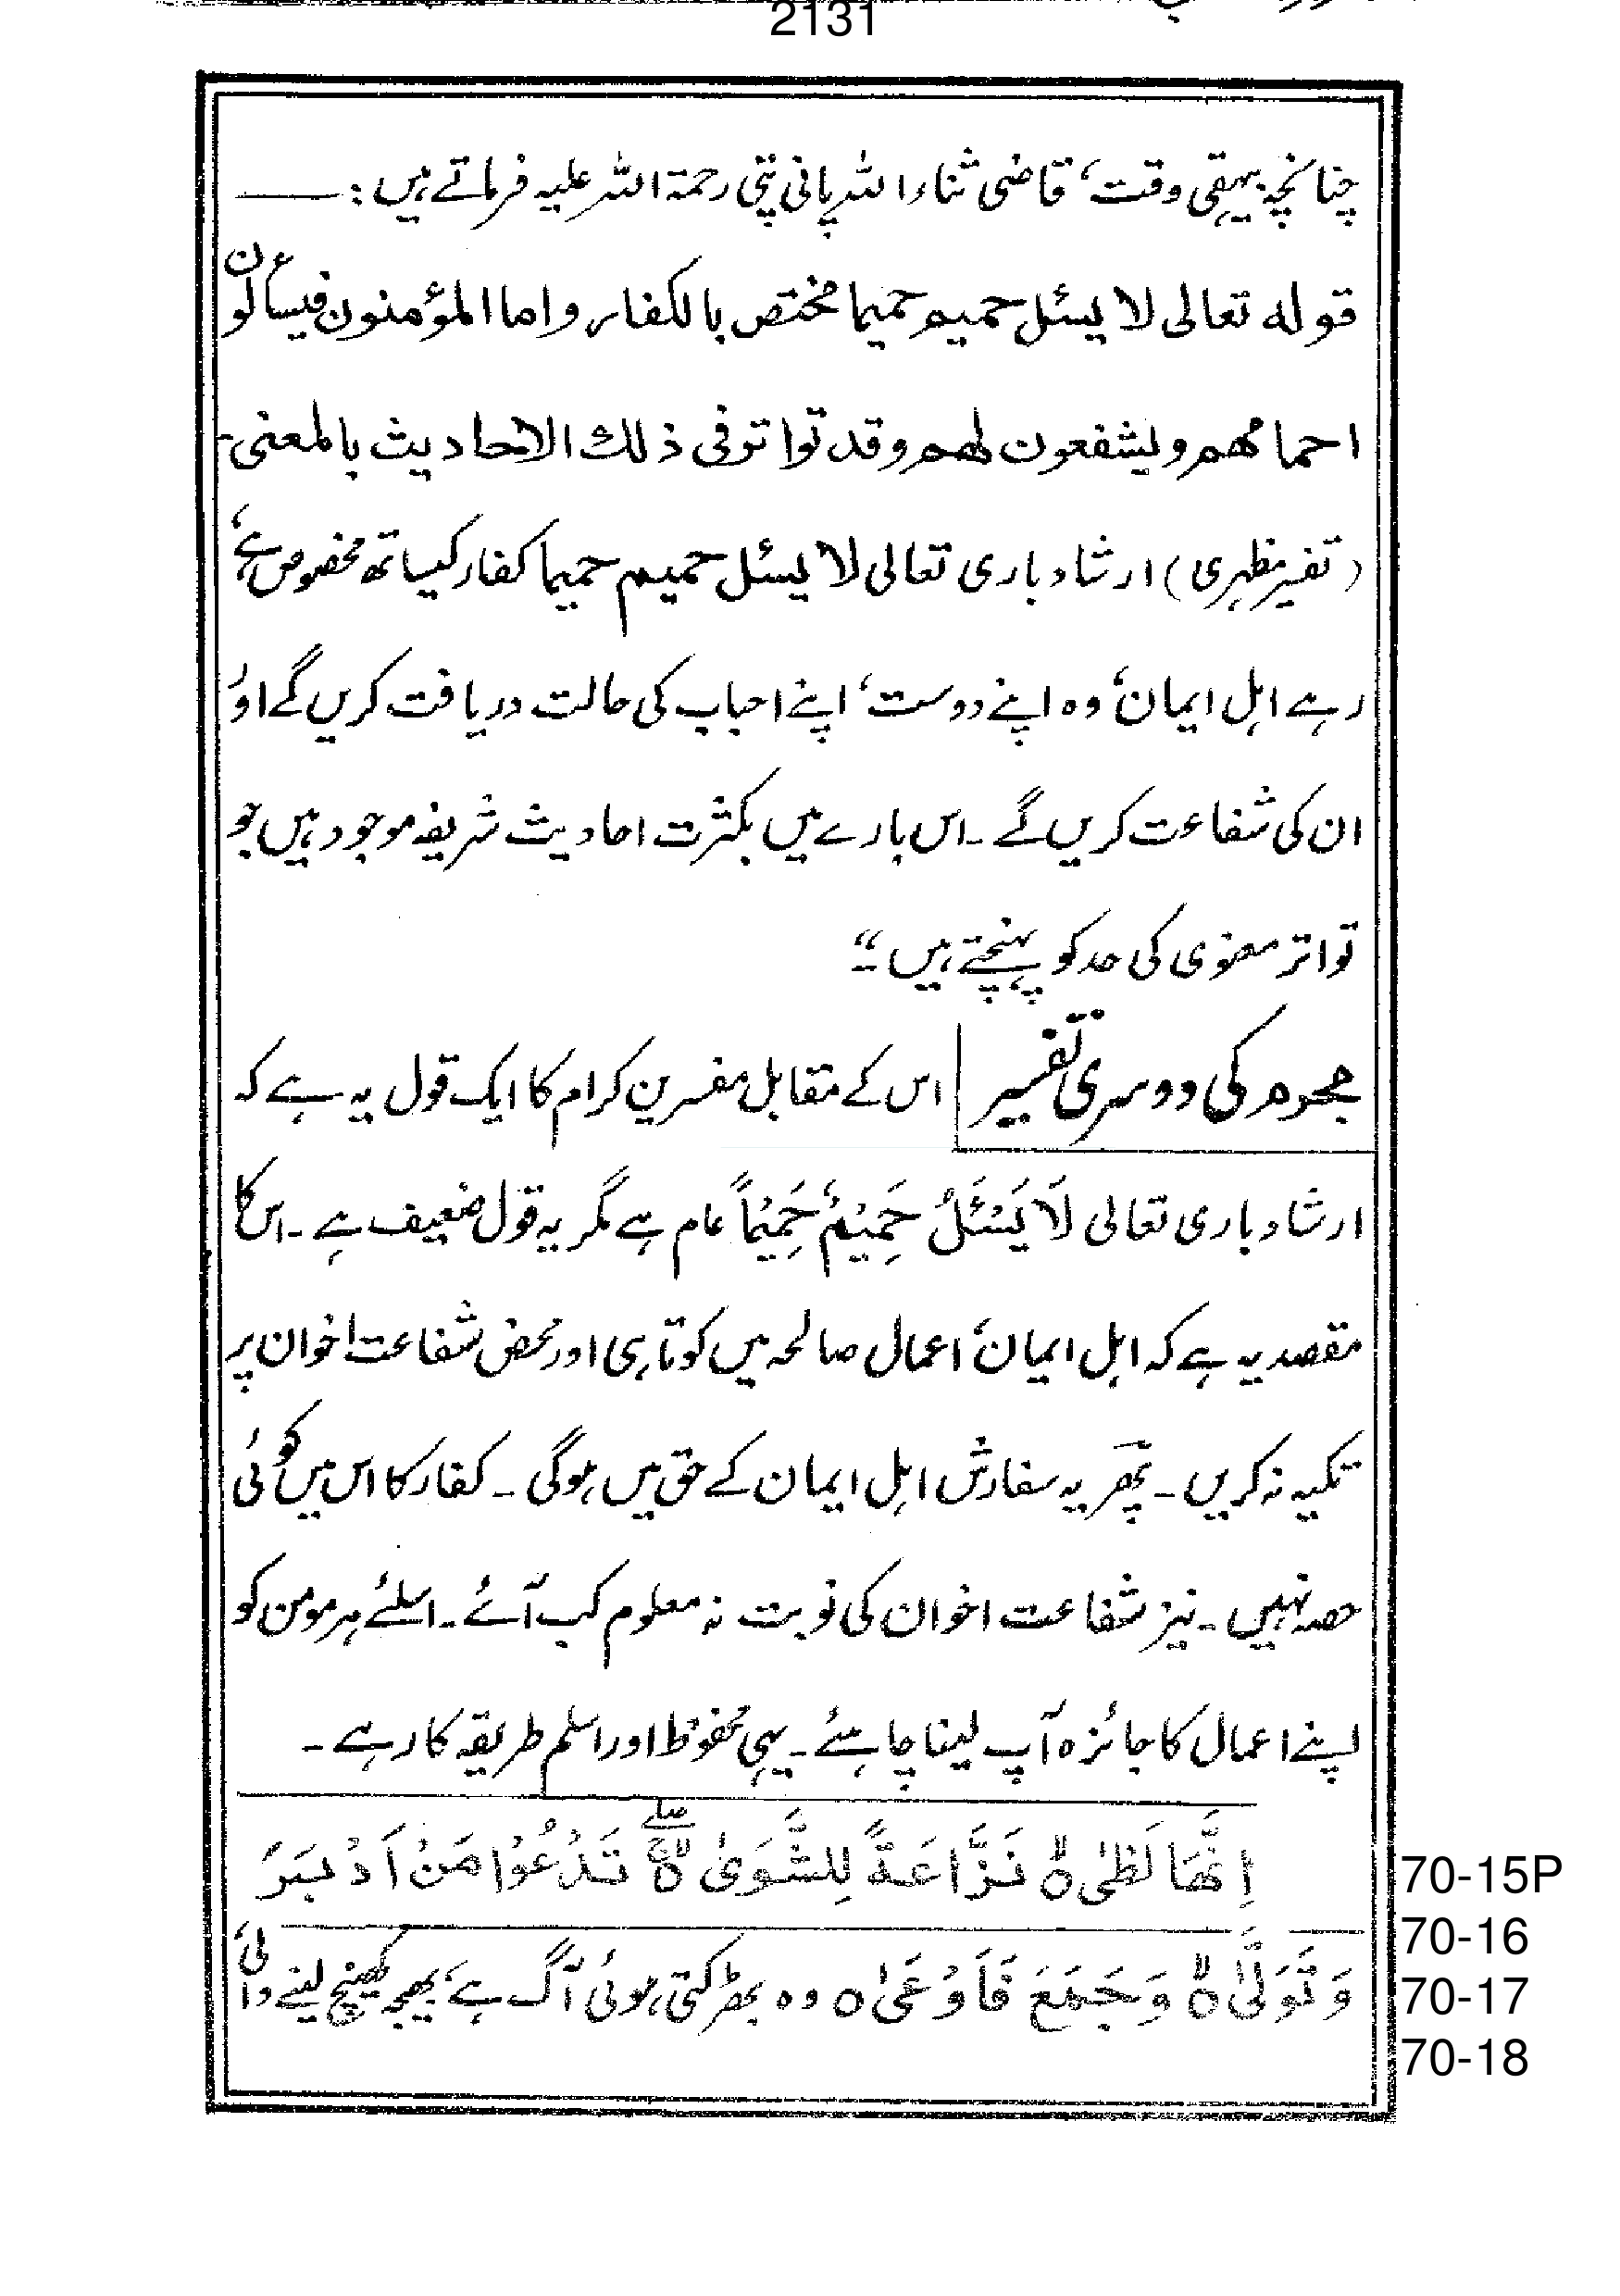 2131
چنانچہ بیہقی وقت، قاضی ثناء اللہ پانی پتی رحمۃ اللہ علیہ فرماتے ہیں :ــــ
قوله تعالى لا يسئل حميم حميما مختص بالكفار واما المؤمنون فيسألون
احماءهم ويشفعون لهم وقد تواتر فى ذلك الاحاديث بالمعنى۔
(تفسیر مظہری) ارشاد باری تعالی لا یسئل حمیم حمیما کفار کیساتھ مخصوص ہے،
رہے اہل ایمان، وہ اپنے دوست، اپنے احباب کی حالت دریافت کریں گے اور
ان کی شفاعت کریں گے ۔ اس بارے میں بکثرت احادیث شریفہ موجود ہیں جو
تواتر معنوی کی حد کو پہنچتے ہیں ۔“
مجرم کی دوسری تفسیر اس کے مقابل مفسرین کرام کا ایک قول یہ ہے کہ
ارشاد باری تعالی لَا يَسْئَلُ حَمِيْمٌ حَمِيْمًا عام ہے مگر یہ قول ضعیف ہے ۔ اس کا
مقصد یہ ہے کہ اہل ایمان، اعمال صالحہ میں کوتاہی اور محض شفاعت اخوان پر
تکیہ نہ کریں ۔ پھر یہ سفارش اہل ایمان کے حق میں ہوگی ۔ کفار کا اس میں کوئی
حصہ نہیں ۔ نیز شفاعت اخوان کی نوبت نہ معلوم کب آئے ۔ اسلئے ہر مومن کو
اپنے اعمال کا جائزہ آپ لینا چاہئے ۔ یہی محفوظ اور اسلم طریقہ کار ہے ۔
اِنَّهَا لَظٰى ۙ‏ نَزَّاعَةً لِّلشَّوٰى ۖۚ‏ تَدْعُوْا مَنْ اَدْبَرَ
وَتَوَلّٰى ۙ‏ وَجَمَعَ فَاَوْعٰى ۝ وہ بھڑکتی ہوئی آگ ہے، بھیجہ کھینچ لینے والی،
70-15P
70-16
70-17
70-18